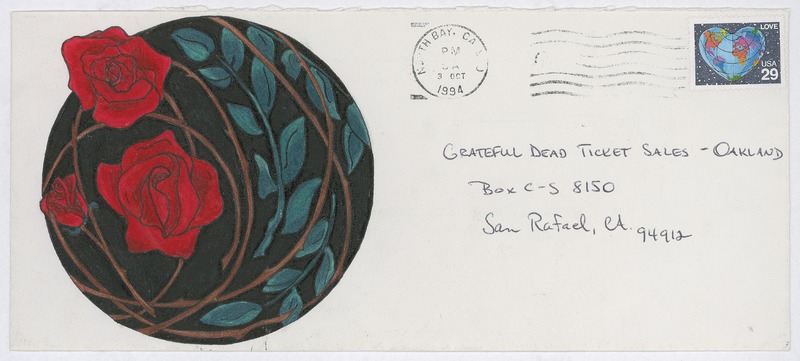 NORTH BAY, CA
PM
3 OCT
1994
LOVE
USA
29
GRATEFUL DEAD TICKET SALES - OAKLAND
BOX C-S 8150
San Rafael, CA. 94912